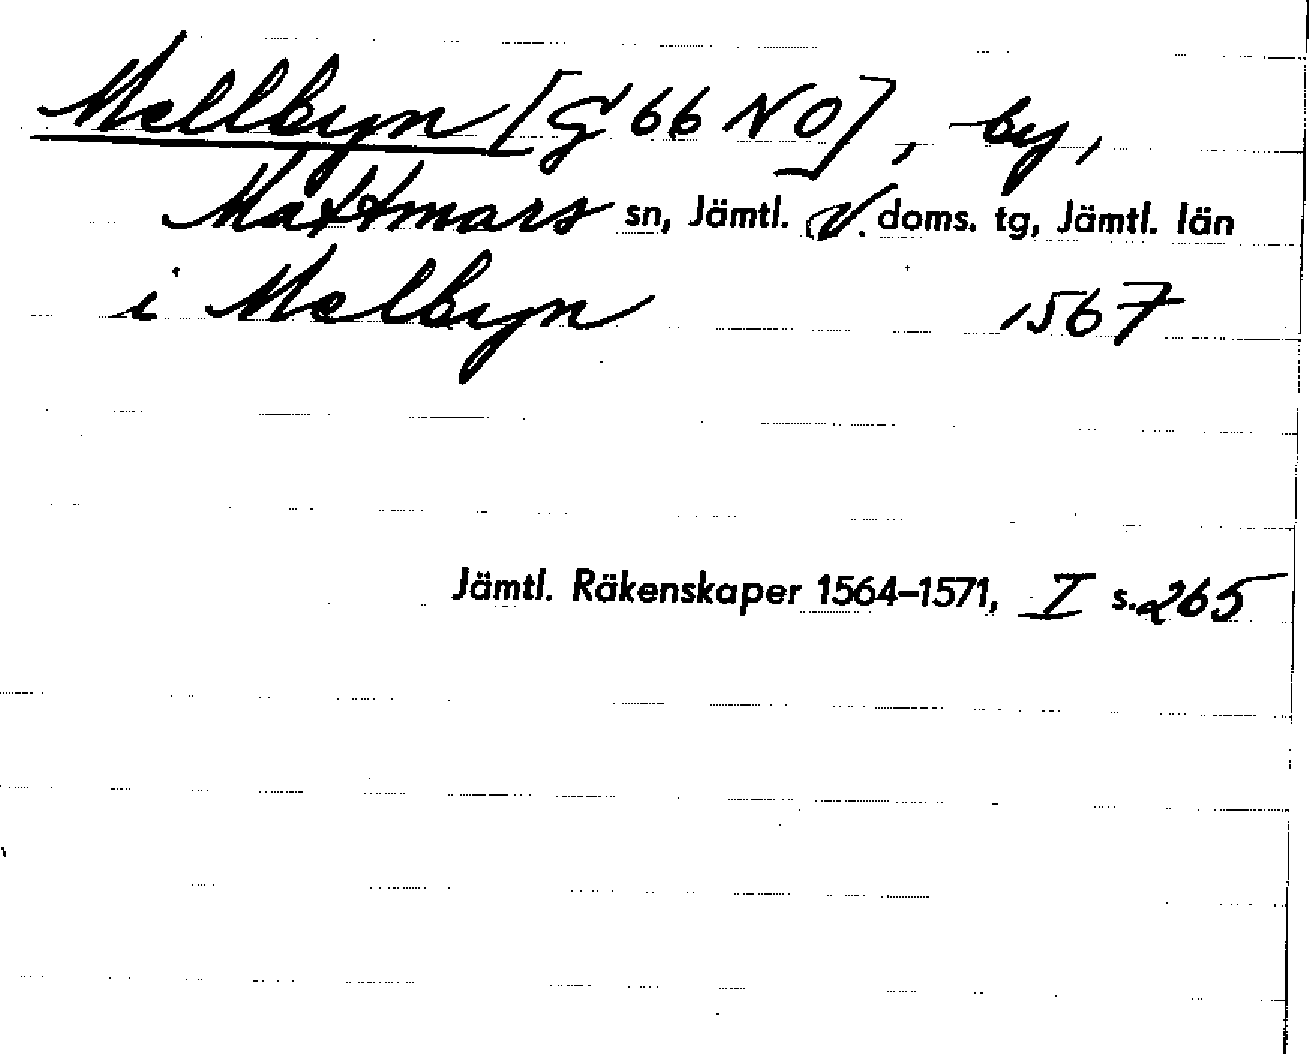 Mellbyn [G 66 NO], by,
Mattmars sn, Jämtl. V. doms. tg, Jämtl. län
i Melbyn 1567
Jämtl. Räkenskaper 1564–1571, I s. 265